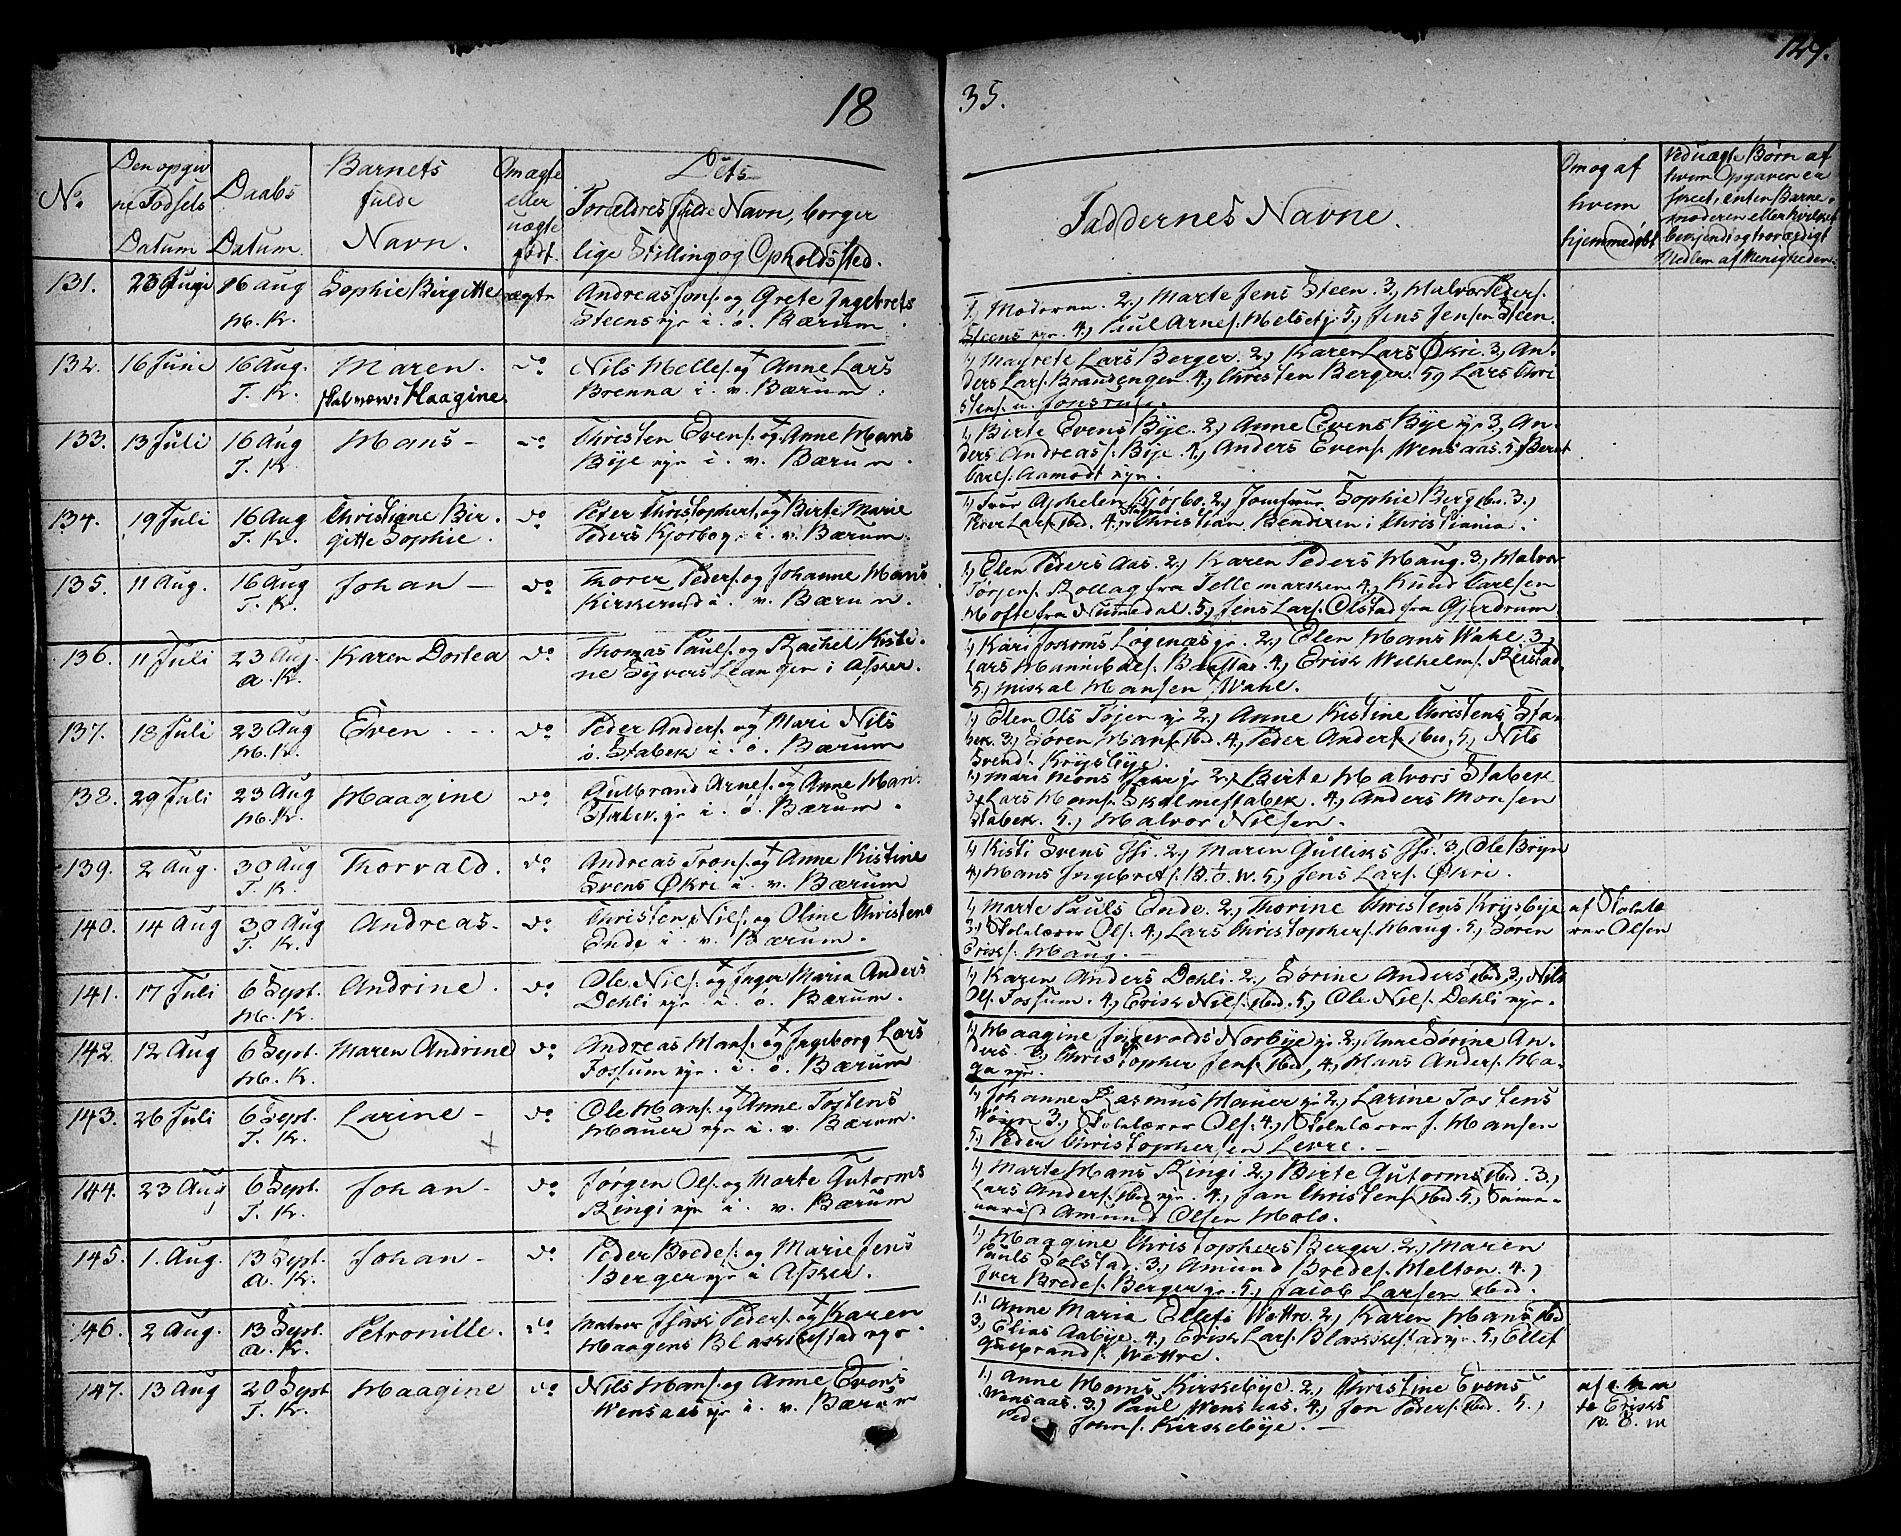 18
35.
129.
No.
Den opgiv
ne Fødsels
Datum
Daabs
Datum.
Barnets
fulde
Navn.
Om ægte
eller
uægte
født.
Dets
Forældres fulde Navn, borger
lige Stilling og Opholdsted.
Faddernes Navne.
Om og af
hvem
hjemmedøbt
Ved uægte Børn af
hvem Opgaven er
skeet, enten Barne-
moderen eller hvilket
bekjendt og troværdigt
Medlem af Menigheden.
131. 16 Aug Sophie Birgitte ægte Andreas Jons. og Grete Ingebrets
H. K. Steens eje i. ø. Bærum
1, Moderen. 2, Marte Jens Steen. 3, Halvor Peders.
Steens eje. 4, Paul Arnes. 5, Jens Jensen Steen.
132. 16 Juni 16 Aug. Maren. do Nils Helles. og Anne Lars
T. K. skal være: Haagine. Brenna i. v. Bærum.
1, Magrete Lars Berger. 2, Karen Lars Økri. 3, An-
ders Lars. Brandengen. 4, Christen Berger. 5, Lars Chri
stens.
133. 13 Juli 16 Aug Hans - do Christen Evens. og Anne Hans
T. K. Bye eje i. v. Bærum.
1, Birte Evens Bye. 2, Anne Evens Bye eje 3, An-
ders Andreas. Bye. 4, Anders Evens. Wensaas. 5, Beret
Carls. Aamodt eje.
134. 19 Juli 16 Aug Christiane Bir- do Peder Christophers. og Birte Marie
T. K. gitte Sophie. Peders Kjørbo eje. i. v. Bærum.
1, Kjørbo. 2, Jomfrue Sophie Berg ibd. 3,
Peder Lars. ibd. 4, Christian i Christiania.
135. 11 Aug. 16 Aug Johan - do Thorer Peders. og Johanne Hans
T. K. Kirkerud i. v. Bærum.
1, Elen Peders Aas. 2, Karen Peders Haug. 3, Halvor
Torjens. Rollag fra Tellemarken. 4, Knud Carlsen
Hofte fra Numedal. 5, Jens Lars. Olstad fra Gjerdrum
136. 11 Juli 23 Aug. Karen Dortea do Thomas Pauls. og Rachel Kisti-
A. K. ne Syvers Leangen i Asker.
1, Kari Løgenæs eje. 2, Elen Hans Wahl. 3,
Lars Hannibals. 4, Erik Wilhelms.
5, Mikal Hansen Wahl.
137. 18 Juli 23 Aug Even. - - do Peder Anders. og Mari Nils
H. K. ø. Stabek i. ø. Bærum
1, Elen Ols Tøjen eje 2, Anne Kistine Christens Sta-
bek. 3, Søren Hans. ibd. 4, Peder Anders. ibd. 5, Nils
Svends. Krysbye.
138. 29 Juli 23 Aug Haagine do Gulbrand Arnes. og Anne Han.
H. K. Stabek eje i. ø. Bærum.
1, Mari Mons 2, Birte Halvors Stabek
3, Lars Hans. Skalmestabek. 4, Anders Monsen
Stabek. 5, Halvor Nilsen.
139. 2 Aug. 30 Aug Thorvald. do Andreas Trons. og Anne Kistine
T. K. Svens Økri i. v. Bærum
1, Kisti Svens 2, Maren Gulliks 3, Ole Bryn
4, Hans Ingebrets. 5, Jens Lars. Økri.
140. 14 Aug 30 Aug Andreas. do Christen Nils. og Oline Christens
T. K. Ende i. v. Bærum.
1, Marte Pauls Ende. 2, Thorine Christens Krysbye
3, Skolelærer Ols. 4, Lars Christophers. Haug. 5, Søren
Eriks. Haug. -
af Skolelæ
rer Olsen
141. 17 Juli 6 Sept. Andrine. do Ole Nils. og Inger Maria Anders
H. K. Dehli eje i. ø. Bærum.
1, Karen Anders Dehli. 2, Sørine Anders ibd. 3, Nils
Ols. Fossum. 4, Erik Nils. ibd. 5, Ole Nils. Dehli eje.
142. 12 Aug 6 Sept. Maren Andrine do Andreas Hans. og Ingeborg Lars
H. K. Fossum eje. i. ø. Bærum
1, Haagine Ingevolds Norbye eje. 2, Anne Sørine An-
ders. 3, Christopher Jens. ibd, 4, Hans Anders. Ha-
ga eje.
143. 26 Juli 6 Sept. Larine - do Ole Hans. og Anne Tostens
T. K. Hauer eje i. v. Bærum.
1, Johanne Rasmus Hauer eje 2, Larine Tostens
3, Skolelærer Ols. 4, Skolelærer J. Hansen
5, Peder Christophersen Levre. -
144. 23 Aug 6 Sept. Johan - do Jørgen Ols. og Marte Gutorms
T. K. Ringi eje i. v. Bærum
1, Marte Hans Ringi. 2, Birte Gutorms ibd. 3,
Lars Anders. ibd eje. 4, Jan Christens. ibd. 5, Semi-
narist Amund Olsen Holo.
145. 1. Aug. 13 Sept. Johan - do Peder Bredes. og Marie Jens
A. K. Berger eje i Asker.
1, Haagine Christophers Berger. 2, Maren
Pauls Solstad. 3, Amund Bredes. Helton. 4,
Iver Bredes. Berger eje. 5, Jacob Larsen ibd.
146. 2 Aug. 13 Sept. Petronille. do Matros Isak Peders. og Karen
A. K. Haagens Blakkestad eje.
1, Anne Maria Ellefs Wettre. 2, Karen Hans ibd
3, Elias Aabye. 4, Erik Lars. Blakkestad eje. 5, Ellef
Gulbrands. Wettre.
147. 13 Aug 20 Sept Haagine do Nils Hans. og Anne Evens
T. K. Wensaas eje i. v. Bærum
1, Anne Hans Kirkebye. 2, Christine Evens
Wensaas. 3, Paul Wensaas. 4, Jon Peders. ibd. 5,
Peder Johns. Kirkebye. -